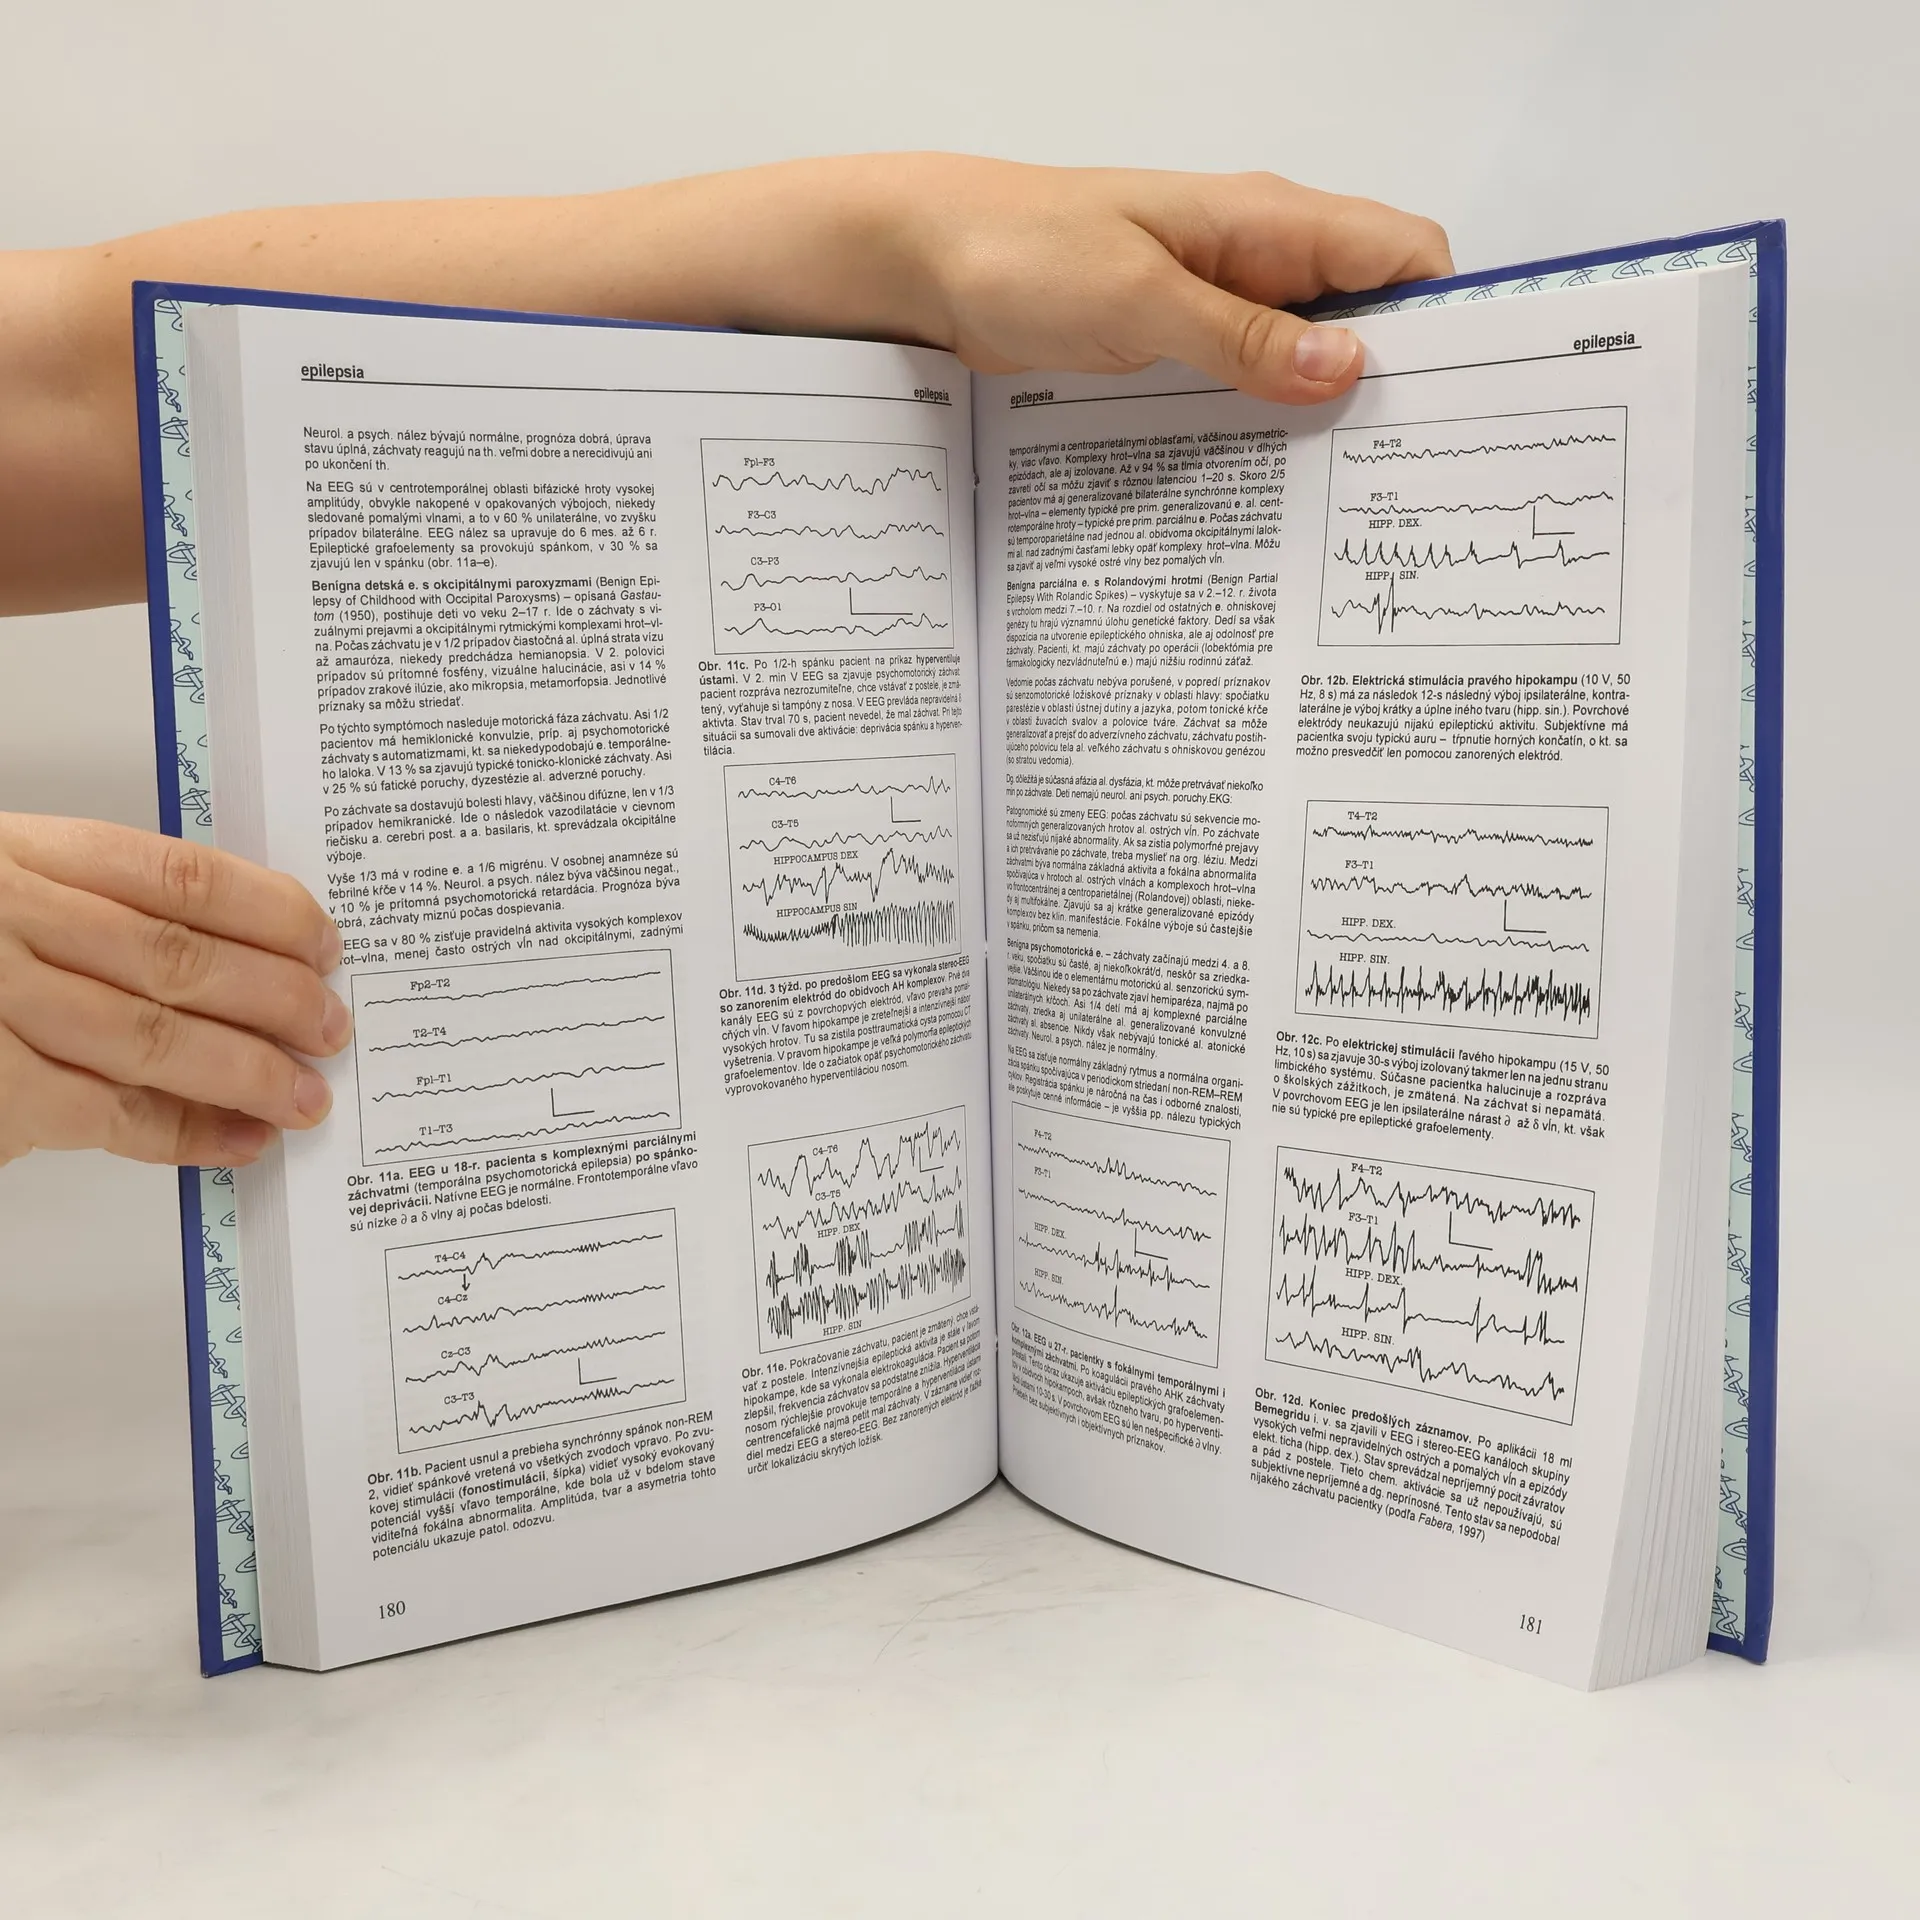 epilepsia
epilepsia
Neurol. a psych. nález bývajú normálne, prognóza dobrá, úprava
stavu úplná, záchvaty reagujú na th. veľmi dobre a nerecidivujú ani
po ukončení th.
Na EEG sú v centrotemporálnej oblasti bifázické hroty vysokej
amplitúdy, obvykle nakopené v opakovaných výbojoch, niekedy
sledované pomalými vlnami, a to v 60 % unilaterálne, vo zvyšku
prípadov bilaterálne. EEG nález sa upravuje do 6 mes. až 6 r.
Epileptické grafoelementy sa provokujú spánkom, v 30 % sa
zjavujú len v spánku (obr. 11a–e).
Benígna detská e. s okcipitálnymi paroxyzmami (Benign Epi-
lepsy of Childhood with Occipital Paroxysms) – opísaná Gastau-
tom (1950), postihuje deti vo veku 2–17 r. Ide o záchvaty s vi-
zuálnymi prejavmi a okcipitálnymi rytmickými komplexami hrot–vl-
na. Počas záchvatu je v 1/2 prípadov čiastočná al. úplná strata vízu
až amauróza, niekedy predchádza hemianopsia. V 2. polovici
prípadov sú prítomné fosfény, vizuálne halucinácie, asi v 14 %
prípadov zrakové ilúzie, ako mikropsia, metamorfopsia. Jednotlivé
príznaky sa môžu striedať.
Po týchto symptómoch nasleduje motorická fáza záchvatu. Asi 1/2
pacientov má hemiklonické konvulzie, príp. aj psychomotorické
záchvaty s automatizmami, kt. sa niekedypodobajú e. temporálne-
ho laloka. V 13 % sa zjavujú typické tonicko-klonické záchvaty. Asi
v 25 % sú fatické poruchy, dyzestézie al. adverzné poruchy.
Po záchvate sa dostavujú bolesti hlavy, väčšinou difúzne, len v 1/3
prípadov hemikranické. Ide o následok vazodilatácie v cievnom
riečisku a. cerebri post. a a. basilaris, kt. sprevádzala okcipitálne
výboje.
Vyše 1/3 má v rodine e. a 1/6 migrénu. V osobnej anamnéze sú
febrilné kŕče v 14 %. Neurol. a psych. nález býva väčšinou negat.,
v 10 % je prítomná psychomotorická retardácia. Prognóza býva
dobrá, záchvaty miznú počas dospievania.
EEG sa v 80 % zisťuje pravidelná aktivita vysokých komplexov
hrot–vlna, menej často ostrých vĺn nad okcipitálnymi, zadnými
Fp2–T2
T2–T4
Fpl–T1
T1–T3
Obr. 11a. EEG u 18-r. pacienta s komplexnými parciálnymi
záchvatmi (temporálna psychomotorická epilepsia) po spánko-
vej deprivácii. Natívne EEG je normálne. Frontotemporálne vľavo
sú nízke ∂ a δ vlny aj počas bdelosti.
T4–C4
C4–Cz
Cz–C3
C3–T3
Obr. 11b. Pacient usnul a prebieha synchrónny spánok non-REM
2, vidieť spánkové vretená vo všetkých zvodoch vpravo. Po zvu-
kovej stimulácii (fonostimulácii, šípka) vidieť vysoký evokovaný
potenciál vyšší vľavo temporálne, kde bola už v bdelom stave
viditeľná fokálna abnormalita. Amplitúda, tvar a asymetria tohto
potenciálu ukazuje patol. odozvu.
180
Fpl–F3
F3–C3
C3–P3
P3–O1
Obr. 11c. Po 1/2-h spánku pacient na príkaz hyperventiluje
ústami. V 2. min V EEG sa zjavuje psychomotorický záchvat
pacient rozpráva nezrozumiteľne, chce vstávať z postele, je zmä-
tený, vyťahuje si tampóny z nosa. V EEG prevláda nepravidelná
aktivta. Stav trval 70 s, pacient nevedel, že mal záchvat. Pri tejto
situácii sa sumovali dve aktivácie: deprivácia spánku a hyperven-
tilácia.
C4–T6
C3–T5
HIPPOCAMPUS DEX
HIPPOCAMPUS SIN
Obr. 11d. 3 týžd. po predošlom EEG sa vykonala stereo-EEG
so zanorením elektród do obidvoch AH komplexov. Prvé dva
kanály EEG sú z povrchopvých elektród, vľavo prevaha pomal-
cňých vĺn. V ľavom hipokampe je zreteľnejší a intenzívnejší nábor
vysokých hrotov. Tu sa zistila posttraumatická cysta pomocou CT
vyšetrenia. V pravom hipokampe je veľká polymorfia epileptických
grafoelementov. Ide o začiatok opäť psychomotorického záchvatu
vyprovokovaného hyperventiláciou nosom.
C4–T6
C3–T5
HIPP. DEX
HIPP. SIN
Obr. 11e. Pokračovanie záchvatu, pacient je zmätený, chce vstá-
vať z postele. Intenzívnejšia epileptická aktivita je stále v ľavom
hipokampe, kde sa vykonala elektrokoagulácia. Pacient sa potom
zlepšil, frekvencia záchvatov sa podstatne znížila. Hyperventilácia ústami
nosom rýchlejšie provokuje temporálne a hyperventilácia
centrencefalické najmä petit mal záchvaty. V zázname vidieť roz-
diel medzi EEG a stereo-EEG. Bez zanorených elektród je ťažké
určiť lokalizáciu skrytých ložísk.
epilepsia
epilepsia
temporálnymi a centroparietálnymi oblasťami, väčšinou asymetric-
ky, viac vľavo. Komplexy hrot–vlna sa zjavujú väčšinou v dlhých
epizódach, ale aj izolovane. Až v 94 % sa tlmia otvorením očí, po
zavretí očí sa môžu zjaviť s rôznou latenciou 1–20 s. Skoro 2/5
pacientov má aj generalizované bilaterálne synchrónne komplexy
hrot–vlna – elementy typické pre prim. generalizovanú e. al. cent-
rotemporálne hroty – typické pre prim. parciálnu e. Počas záchvatu
sú temporoparietálne nad jednou al. obidvoma okcipitálnymi lalok-
mi al. nad zadnými časťami lebky opäť komplexy hrot–vlna. Môžu
sa zjaviť aj veľmi vysoké ostré vlny bez pomalých vĺn.
Benígna parciálna e. s Rolandovými hrotmi (Benign Partial
Epilepsy With Rolandic Spikes) – vyskytuje sa v 2.–12. r. života
s vrcholom medzi 7.–10. r. Na rozdiel od ostatných e. ohniskovej
genézy tu hrajú významnú úlohu genetické faktory. Dedí sa však
dispozícia na utvorenie epileptického ohniska, ale aj odolnosť pre
záchvaty. Pacienti, kt. majú záchvaty po operácii (lobektómia pre
farmakologicky nezvládnuteľnú e.) majú nižšiu rodinnú záťaž.
Vedomie počas záchvatu nebýva porušené, v popredí príznakov
sú senzomotorické ložiskové príznaky v oblasti hlavy: spočiatku
parestézie v oblasti ústnej dutiny a jazyka, potom tonické kŕče
v oblasti žuvacích svalov a polovice tváre. Záchvat sa môže
generalizovať a prejsť do adverzívneho záchvatu, záchvatu postih-
ujúceho polovicu tela al. veľkého záchvatu s ohniskovou genézou
(so stratou vedomia).
Dg. dôležitá je súčasná afázia al. dysfázia, kt. môže pretrvávať niekoľko
min po záchvate. Deti nemajú neurol. ani psych. poruchy.EKG:
Patognomické sú zmeny EEG: počas záchvatu sú sekvencie mo-
noformných generalizovaných hrotov al. ostrých vĺn. Po záchvate
sa už nezisťujú nijaké abnormality. Ak sa zistia polymorfné prejavy
a ich pretrvávanie po záchvate, treba myslieť na org. léziu. Medzi
záchvatmi býva normálna základná aktivita a fokálna abnormalita
spočívajúca v hrotoch al. ostrých vlnách a komplexoch hrot–vlna
vo frontocentrálnej a centroparietálnej (Rolandovej) oblasti, nieke-
dy aj multifokálne. Zjavujú sa aj krátke generalizované epizódy
komplexov bez klin. manifestácie. Fokálne výboje sú častejšie
v spánku, pričom sa nemenia.
Benígna psychomotorická e. – záchvaty začínajú medzi 4. a 8.
r. veku, spočiatku sú časté, aj niekoľkokrát/d, neskôr sa zriedka-
vejšie. Väčšinou ide o elementárnu motorickú al. senzorickú sym-
ptomatológiu. Niekedy sa po záchvate zjaví hemiparéza, najmä po
unilaterálnych kŕčoch. Asi 1/4 detí má aj komplexné parciálne
záchvaty, zriedka aj unilaterálne al. generalizované konvulzné
záchvaty al. absencie. Nikdy však nebývajú tonické al. atonické
záchvaty. Neurol. a psych. nález je normálny.
Na EEG sa zisťuje normálny základný rytmus a normálna organi-
zácia spánku spočívajúca v periodickom striedaní non-REM–REM
cyklov. Registrácia spánku je náročná na čas i odborné znalosti,
ale poskytuje cenné informácie – je vyššia pp. nálezu typických
F4–T2
F3–T1
HIPP. DEX.
HIPP. SIN.
Obr. 12a. EEG u 27-r. pacientky s fokálnymi temporálnymi i
komplexnými záchvatmi. Po koagulácii pravého AHK záchvaty
prestali. Tento obraz ukazuje aktiváciu epileptických grafoelemen-
tov v obidvoch hipokampoch, avšak rôzneho tvaru, po hyperventi-
lácii ústami 10-30 s. V povrchovom EEG sú len nešpecifické ∂ vlny.
Priebeh bez subjektívnych i objektívnych príznakov.
F4–T2
F3–T1
HIPP. DEX.
HIPP. SIN.
Obr. 12b. Elektrická stimulácia pravého hipokampu (10 V, 50
Hz, 8 s) má za následok 12-s následný výboj ipsilaterálne, kontra-
laterálne je výboj krátky a úplne iného tvaru (hipp. sin.). Povrchové
elektródy neukazujú nijakú epileptickú aktivitu. Subjektívne má
pacientka svoju typickú auru – tŕpnutie horných končatín, o kt. sa
možno presvedčiť len pomocou zanorených elektród.
T4–T2
F3–T1
HIPP. DEX.
HIPP. SIN.
Obr. 12c. Po elektrickej stimulácii ľavého hipokampu (15 V, 50
Hz, 10 s) sa zjavuje 30-s výboj izolovaný takmer len na jednu stranu
limbického systému. Súčasne pacientka halucinuje a rozpráva
o školských zážitkoch, je zmätená. Na záchvat si nepamätá.
V povrchovom EEG je len ipsilaterálne nárast ∂ až δ vĺn, kt. však
nie sú typické pre epileptické grafoelementy.
F4–T2
F3–T1
HIPP. DEX.
HIPP. SIN.
Obr. 12d. Koniec predošlých záznamov. Po aplikácii 18 ml
Bemegridu i. v. sa zjavili v EEG i stereo-EEG kanáloch skupiny
vysokých veľmi nepravidelných ostrých a pomalých vĺn a epizódy
elekt. ticha (hipp. dex.). Stav sprevádzal nepríjemný pocit závratov
a pád z postele. Tieto chem. aktivácie sa už nepoužívajú, sú
subjektívne nepríjemné a dg. neprínosné. Tento stav sa nepodobal
nijakého záchvatu pacientky (podľa Fabera, 1997)
181